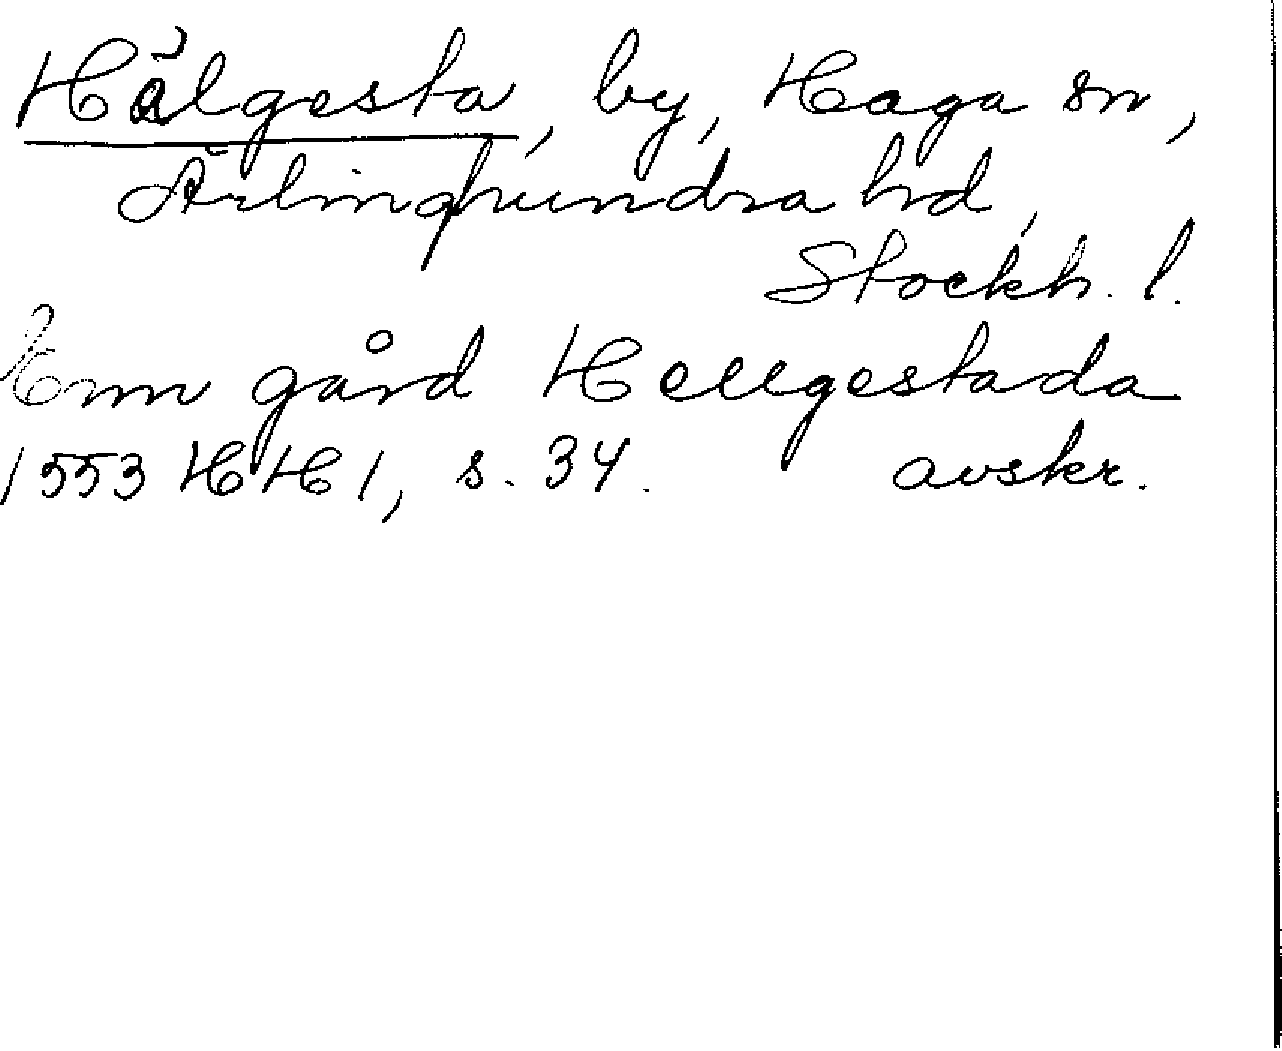 Hälgesta, by, Haga sn,
Ärlinghundra hd,
Stockh. l.
Enn gård Hellgestada
1553 HH 1, s. 34. avskr.